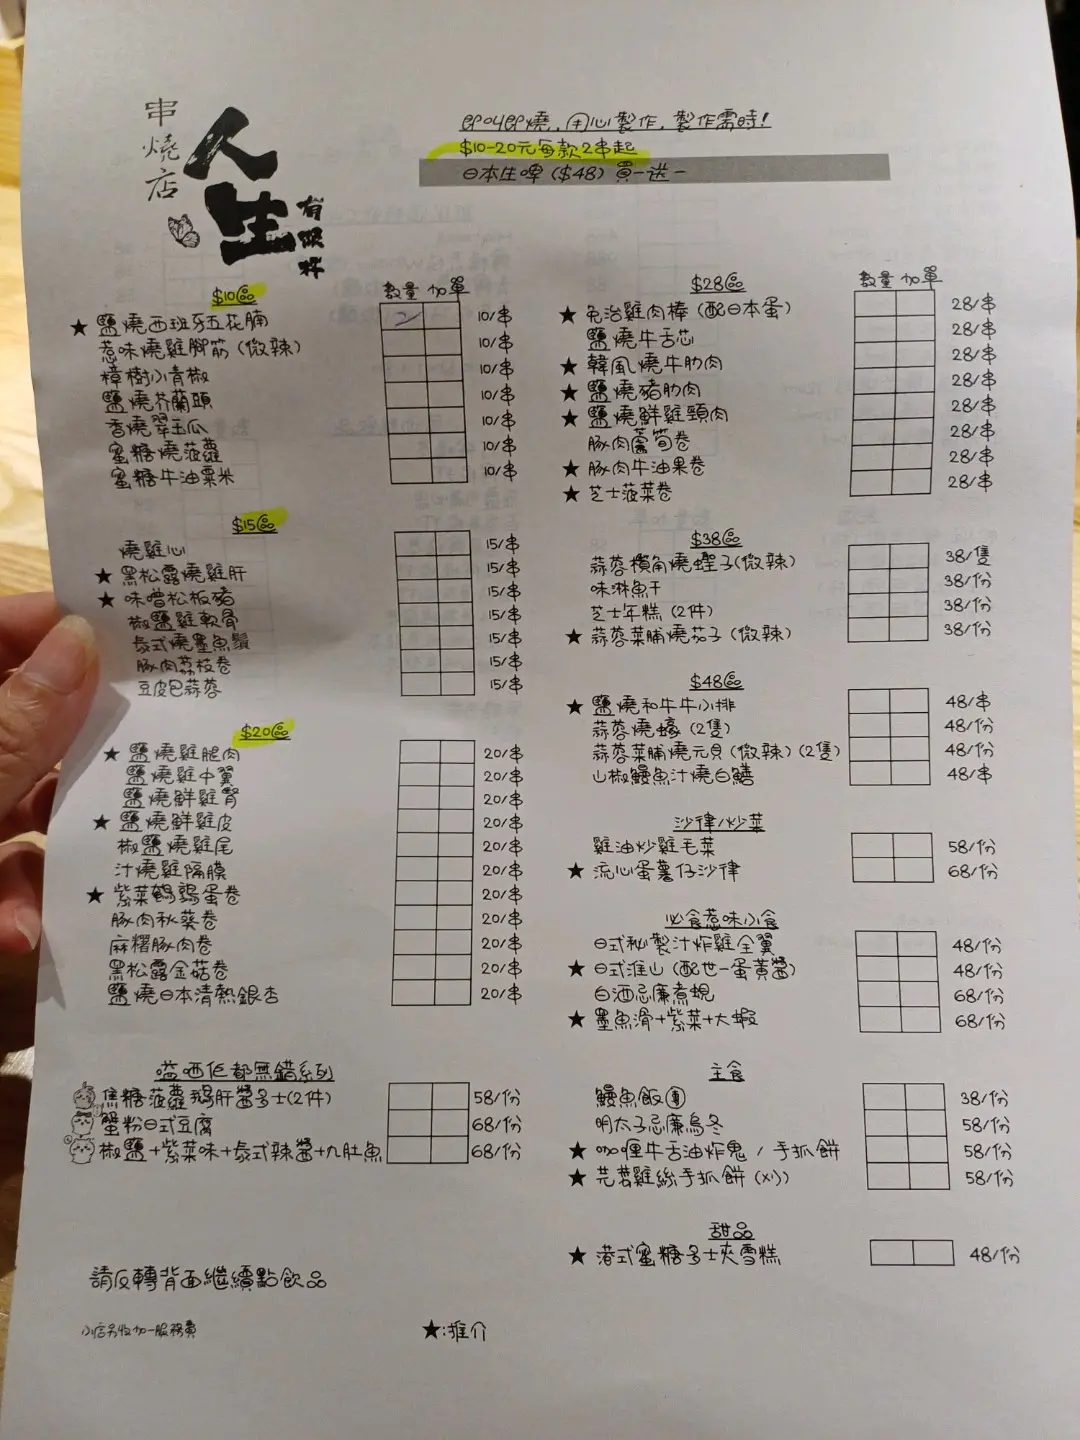 串燒店
人生
有限杯
即叫即燒,用心製作,製作需時!
$10-20元每款2串起
日本生啤($48)買一送一
$10區 數量 加單
★ 鹽燒西班牙五花腩 2 10/串
惹味燒雞腳筋(微辣) 10/串
樟樹小青椒 10/串
鹽燒芥蘭頭 10/串
香燒翠玉瓜 10/串
蜜糖燒菠蘿 10/串
蜜糖牛油粟米 10/串
$15區
燒雞心 15/串
★ 黑松露燒雞肝 15/串
★ 味噌松板豬 15/串
椒鹽雞軟骨 15/串
泰式燒墨魚鬚 15/串
豚肉荔枝卷 15/串
豆皮包蒜蓉 15/串
$20區
★ 鹽燒雞腿肉 20/串
鹽燒雞中翼 20/串
鹽燒鮮雞腎 20/串
★ 鹽燒鮮雞皮 20/串
椒鹽燒雞尾 20/串
汁燒雞隔膜 20/串
★ 紫菜鵪鶉蛋卷 20/串
豚肉秋葵卷 20/串
麻糬豚肉卷 20/串
黑松露金菇卷 20/串
鹽燒日本清熱銀杏 20/串
嗌晒佢都無錯系列
焦糖菠蘿鵝肝醬多士(2件) 58/份
蟹粉日式豆腐 68/份
椒鹽+紫菜味+泰式辣醬+九肚魚 68/份
請反轉背面繼續點飲品
小店另收加一服務費
★:推介
$28區 數量 加單
★ 免治雞肉棒(配日本蛋) 28/串
鹽燒牛舌芯 28/串
★ 韓風燒牛肋肉 28/串
★ 鹽燒豬肋肉 28/串
★ 鹽燒鮮雞頸肉 28/串
豚肉蘆筍卷 28/串
★ 豚肉牛油果卷 28/串
★ 芝士菠菜卷 28/串
$38區
蒜蓉欖角燒蟶子(微辣) 38/隻
味淋魚干 38/份
芝士年糕(2件) 38/份
★ 蒜蓉菜脯燒茄子(微辣) 38/份
$48區
★ 鹽燒和牛牛小排 48/串
蒜蓉燒蠔(2隻) 48/份
蒜蓉菜脯燒元貝(微辣)(2隻) 48/份
山椒鰻魚汁燒白鱔 48/串
沙律/炒菜
雞油炒雞毛菜 58/份
★ 流心蛋薯仔沙律 68/份
必食惹味小食
日式秘製汁炸雞全翼 48/份
★ 日式淮山(配世一蛋黃醬) 48/份
白酒忌廉煮蜆 68/份
★ 墨魚滑+紫菜+大蝦 68/份
主食
鰻魚飯團 38/份
明太子忌廉烏冬 58/份
★ 咖喱牛舌油炸鬼/手抓餅 58/份
★ 芫荽雞絲手抓餅(刈) 58/份
甜品
★ 港式蜜糖多士夾雪糕 48/份